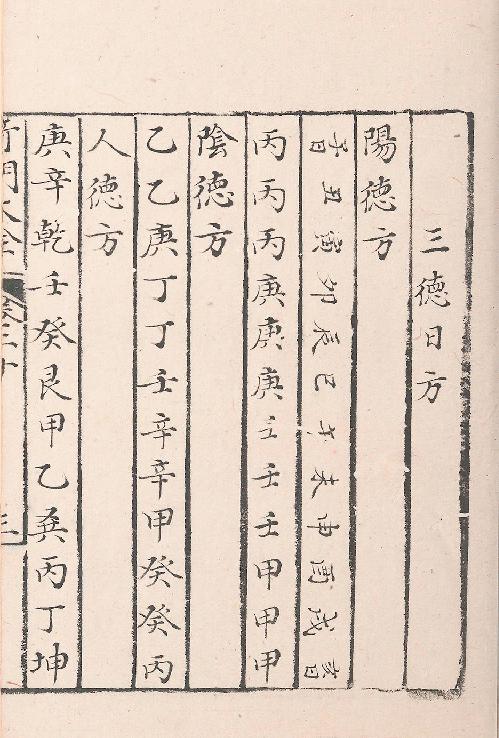 三德日方
陽德方
子日丑寅卯辰巳午未申酉戌亥日
丙丙丙庚庚庚壬壬甲甲甲
陰德方
乙乙庚丁丁壬辛辛甲癸癸丙
人德方
庚辛乾壬癸艮甲乙巽丙丁坤
奇門大全 卷三十 三